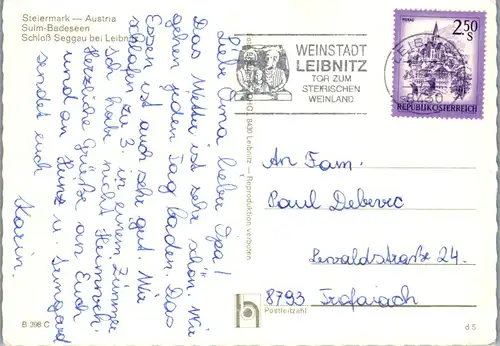 Steiermark — Austria
Sulm-Badeseen
Schloß Seggau bei Leibnitz
Liebe Oma, lieber Opa!
Das Wetter ist sehr schön. Wir
gehen jeden Tag baden. Das
Essen ist auch sehr gut. Wir
schlafen zu 3. in einem Zimmer.
Ich habe nicht Heimweh.
Herzliche Grüße an Euch
und an Heinz u. Irmgard
sendet euch
Karin.
B 398 C
8430 Leibnitz — Reproduktion verboten
WEINSTADT
LEIBNITZ
TOR ZUM
STEIRISCHEN
WEINLAND
LEIBNITZ
MURAU
2.50
S
REPUBLIK ÖSTERREICH
An Fam.
Paul Debevec
24.
8793 Trofaiach
Postleitzahl
d 5